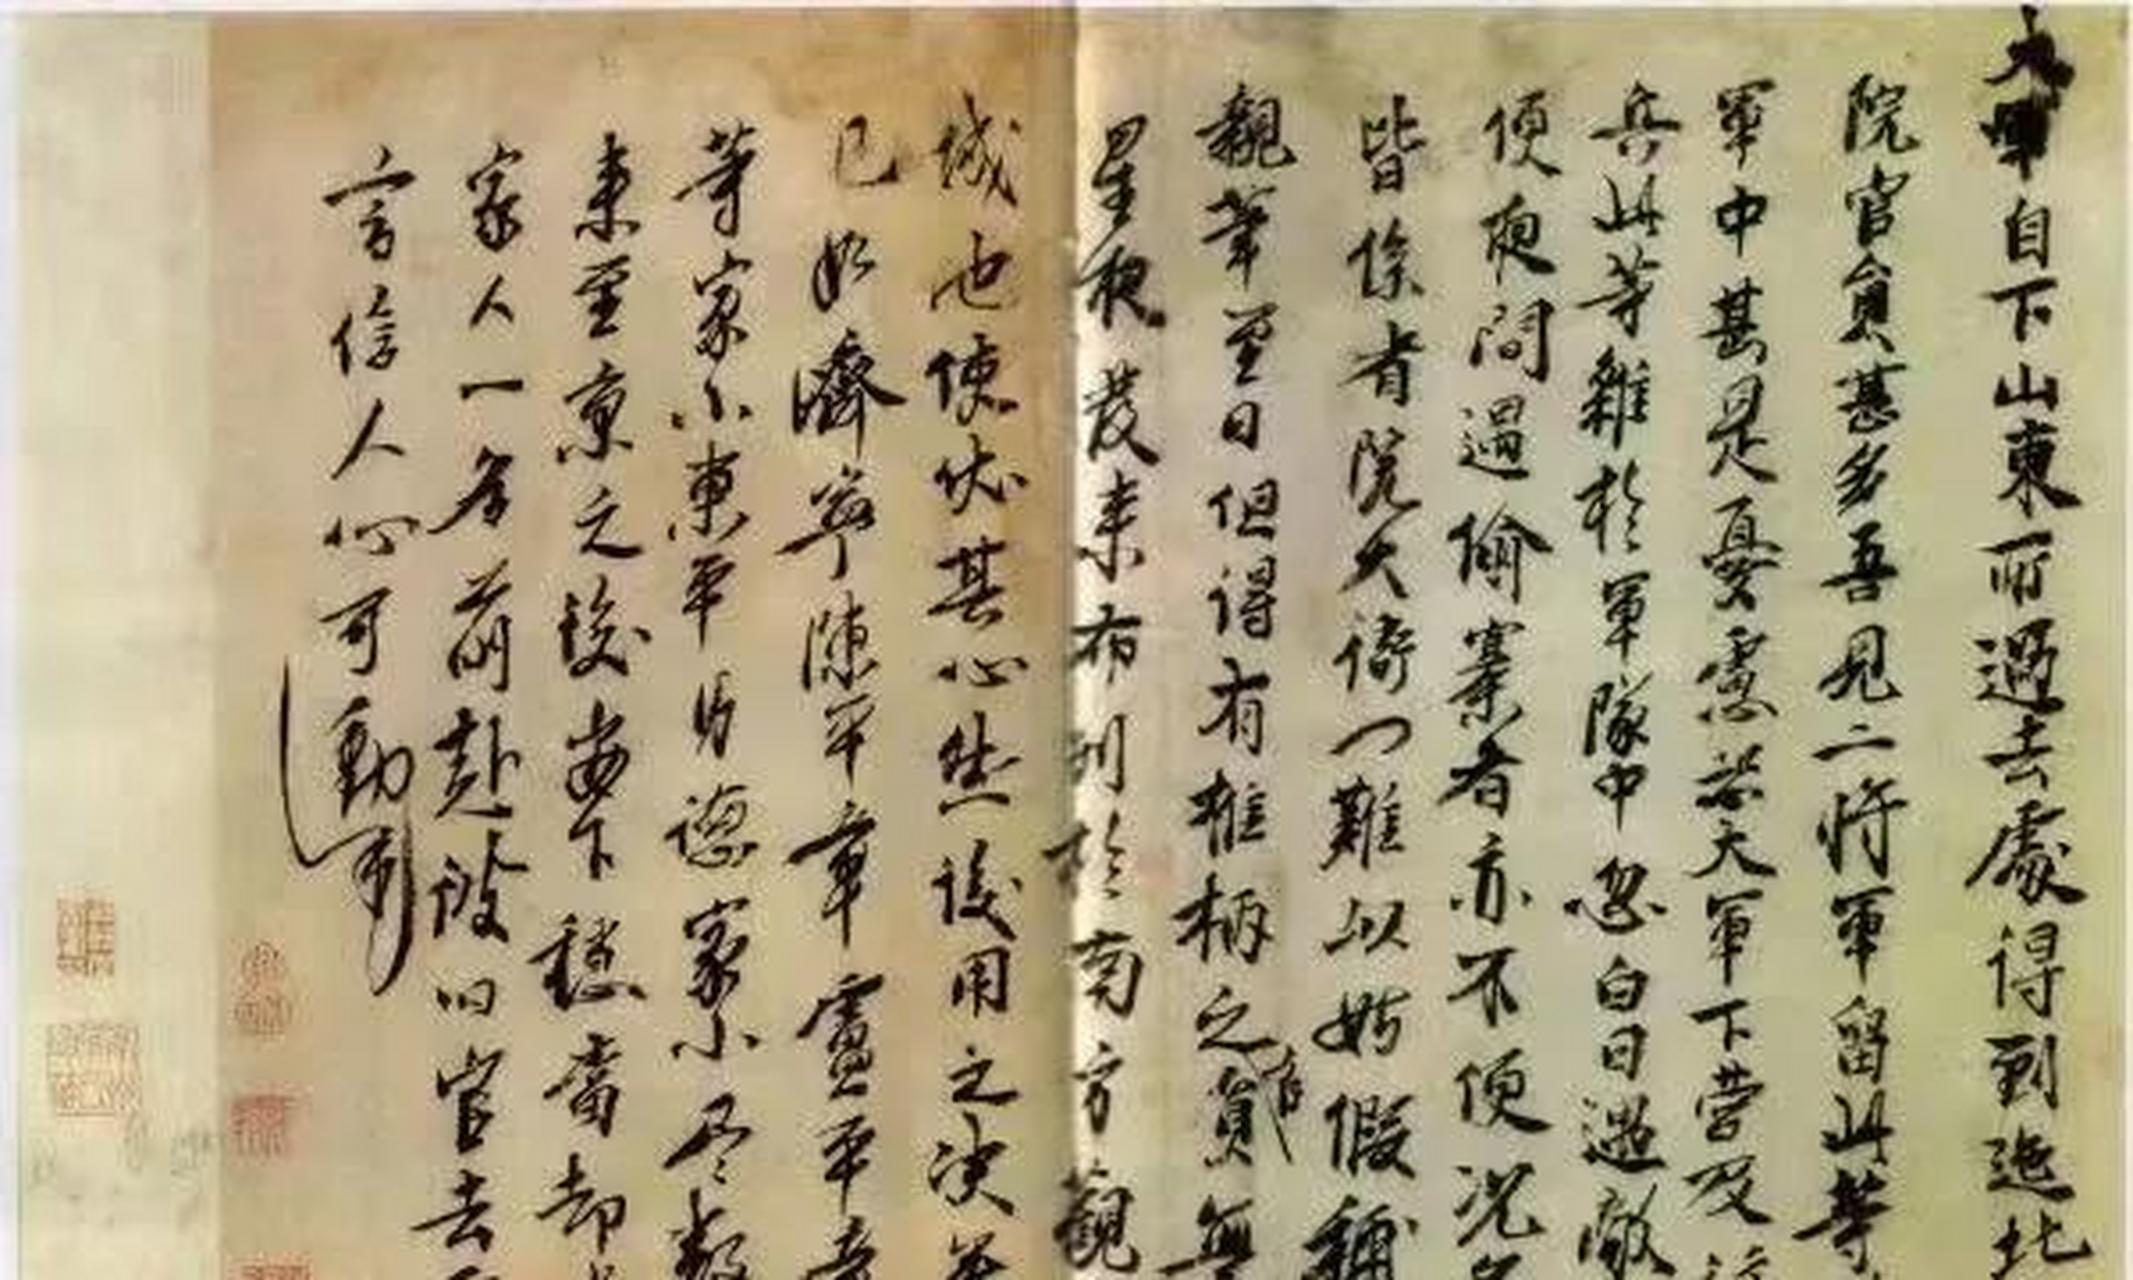 大軍自下山東所過去處得到迤北
院官員甚多吾見二將軍留此等
軍中甚是憂慮恐大軍下營及行
兵此等雜於軍隊中忽白日遇敵
便夜間遇偷寨者亦不便況
皆係省院大衙門難以姑假補
親筆至日但得有椎柄之官員無
星夜發來布列於南方觀
城也使伏其心然後用之決無
已如濟寧陳平章盧平章
等家小東平馬德家小盡數
來至京之後安下穩當却
家人一名前赴彼舊官去
言信人心可動